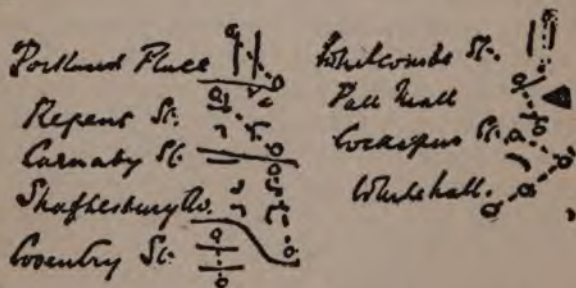 Portland Place
Regent St.
Carnaby St.
Shaftesbury Av.
Coventry St.
Whitcombe St.
Pall Mall
Cockspur St.
Whitehall.